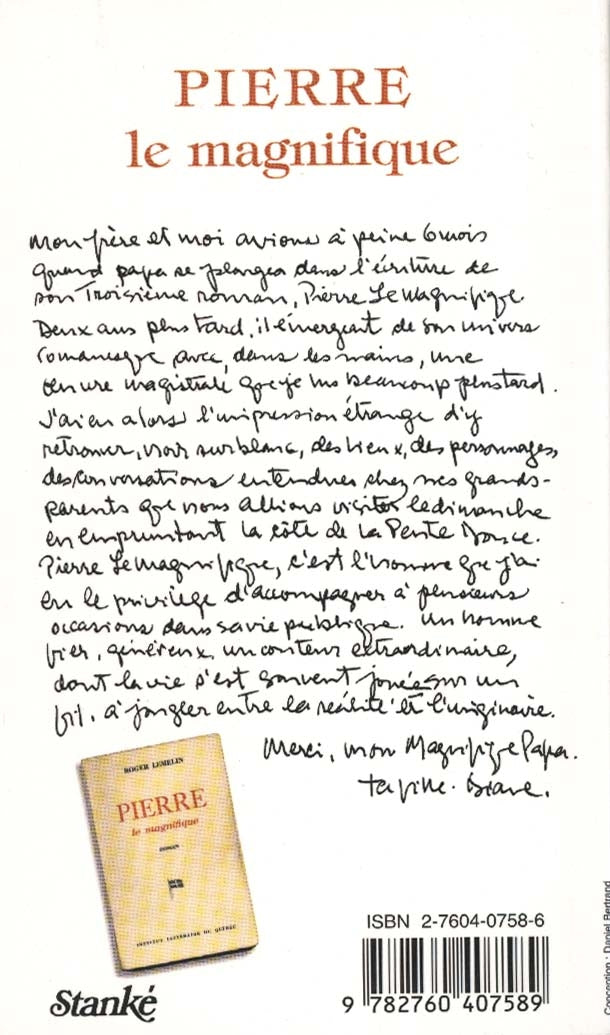 PIERRE
le magnifique
Mon frère et moi avions à peine 6 mois
quand papa se plongea dans l'écriture de
son Troisième roman, Pierre Le Magnifique.
Deux ans plus tard, il émergeait de son univers
romanesque avec, dans les mains, une
oeuvre magistrale que je lus beaucoup plus tard.
J'ai eu alors l'impression étrange d'y
retrouver, noir sur blanc, des lieux, des personnages,
des conversations entendues chez mes grands-
parents que nous allions visiter le dimanche
en empruntant la côte de la Pente Douce.
Pierre Le Magnifique, c'est l'homme que j'ai
eu le privilège d'accompagner à plusieurs
occasions dans sa vie publique. Un homme
fier, généreux, un conteur extraordinaire,
dont la vie s'est souvent jouée sur un
fil, à jongler entre la réalité et l'imaginaire.
Merci, mon Magnifique Papa.
ta fille. Diane.
ROGER LEMELIN
PIERRE
le magnifique
ROMAN
INSTITUT LITTÉRAIRE DU QUÉBEC
Stanké
ISBN 2-7604-0758-6
9 782760 407589
Conception : Daniel Bertrand